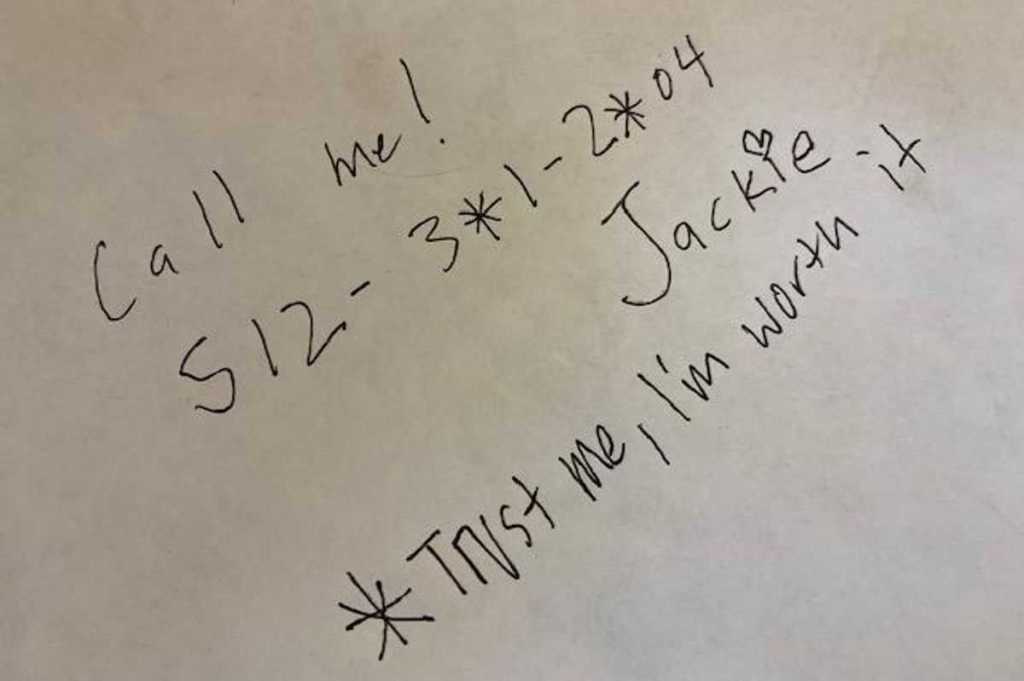 Call me!
512-3*1-2*04
Jackie
*Trust me, I'm worth it